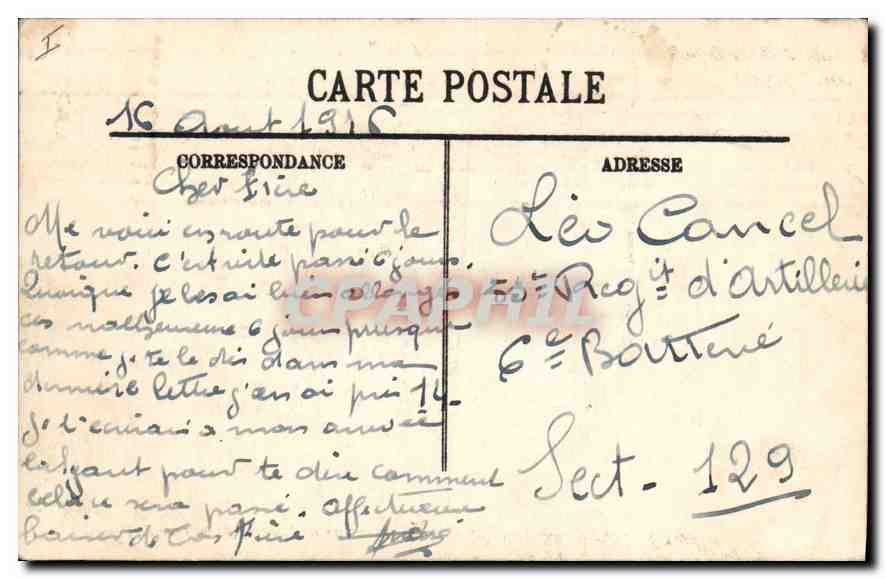 I
CARTE POSTALE
16 Aout 1916
CORRESPONDANCE
ADRESSE
Cher frère
Me voici en route pour le
retour. C'est vite passé 6 jours.
Quoique je les ai bien allongés
ces 6 jours presque
comme je te le dis dans ma
dernière lettre j'en ai pris 14.
je t'écrirai a mon arrivée
pour te dire comment
cela se sera passé. Affectueux
baiser de ton Frère
Léo Cancel
55e Regit d'Artillerie
6e Batterie
Sect - 129
CPAPHIL